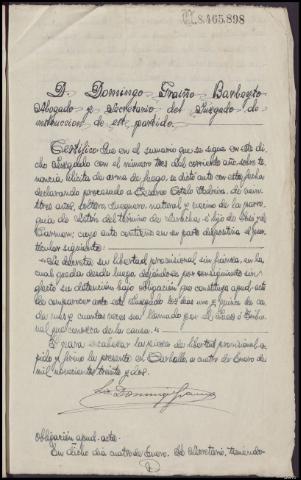 8.465.898
D. Domingo Graiño Barboyto
Abogado y Secretario del Juzgado de
instruccion de este partido.
Certifico: Que en el sumario que se sigue en este di-
cho Juzgado con el número tres del corriente año sobre te-
nencia ilicita de arma de fuego, se dictó auto con esta fecha
declarando procesado a Isidro Cotelo de vein-
tiros años, soltero, natural y vecino de la parro-
quia de del término de Laracha, é hijo de José y del
Carmen; cuyo auto contiene en su parte dispositiva el par-
ticular siguiente:
Se decreta su libertad provisional sin fianza, en la
cual queda desde luego dejándose por consiguiente sin
efecto su detención bajo obligación que constituya apud-acta
de comparecer ante este Juzgado los dias uno y quince de ca-
da mes y cuantas veces sea llamado por el Juez ó Tribu-
nal que conozca de la causa.
Y para encabezar la pieza de libertad provisional ex-
pido y firmo la presente en Carballo a cuatro de Enero de
mil novecientos treinta y dos.
Lic. Domingo Graiño
Obligación apud-acta.
En dicho dia cuatro de Enero. El Secretario, teniendo